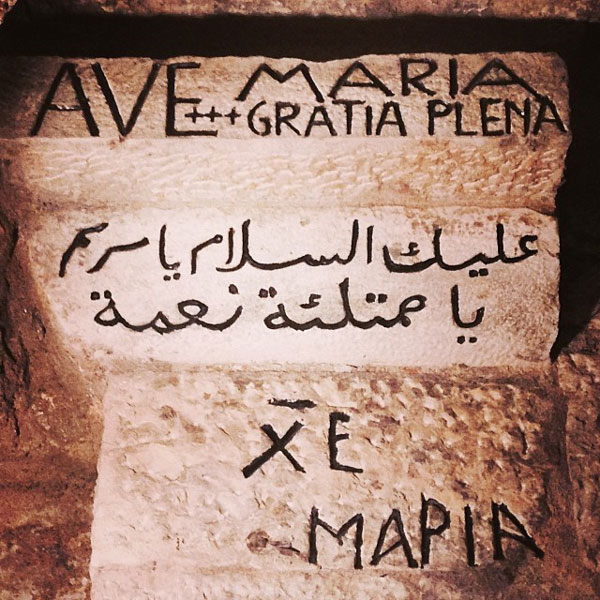 AVE MARIA
+++GRATIA PLENA
عليك السلام يا مريم
يا ممتلئة نعمة
X̄E
MAPIA